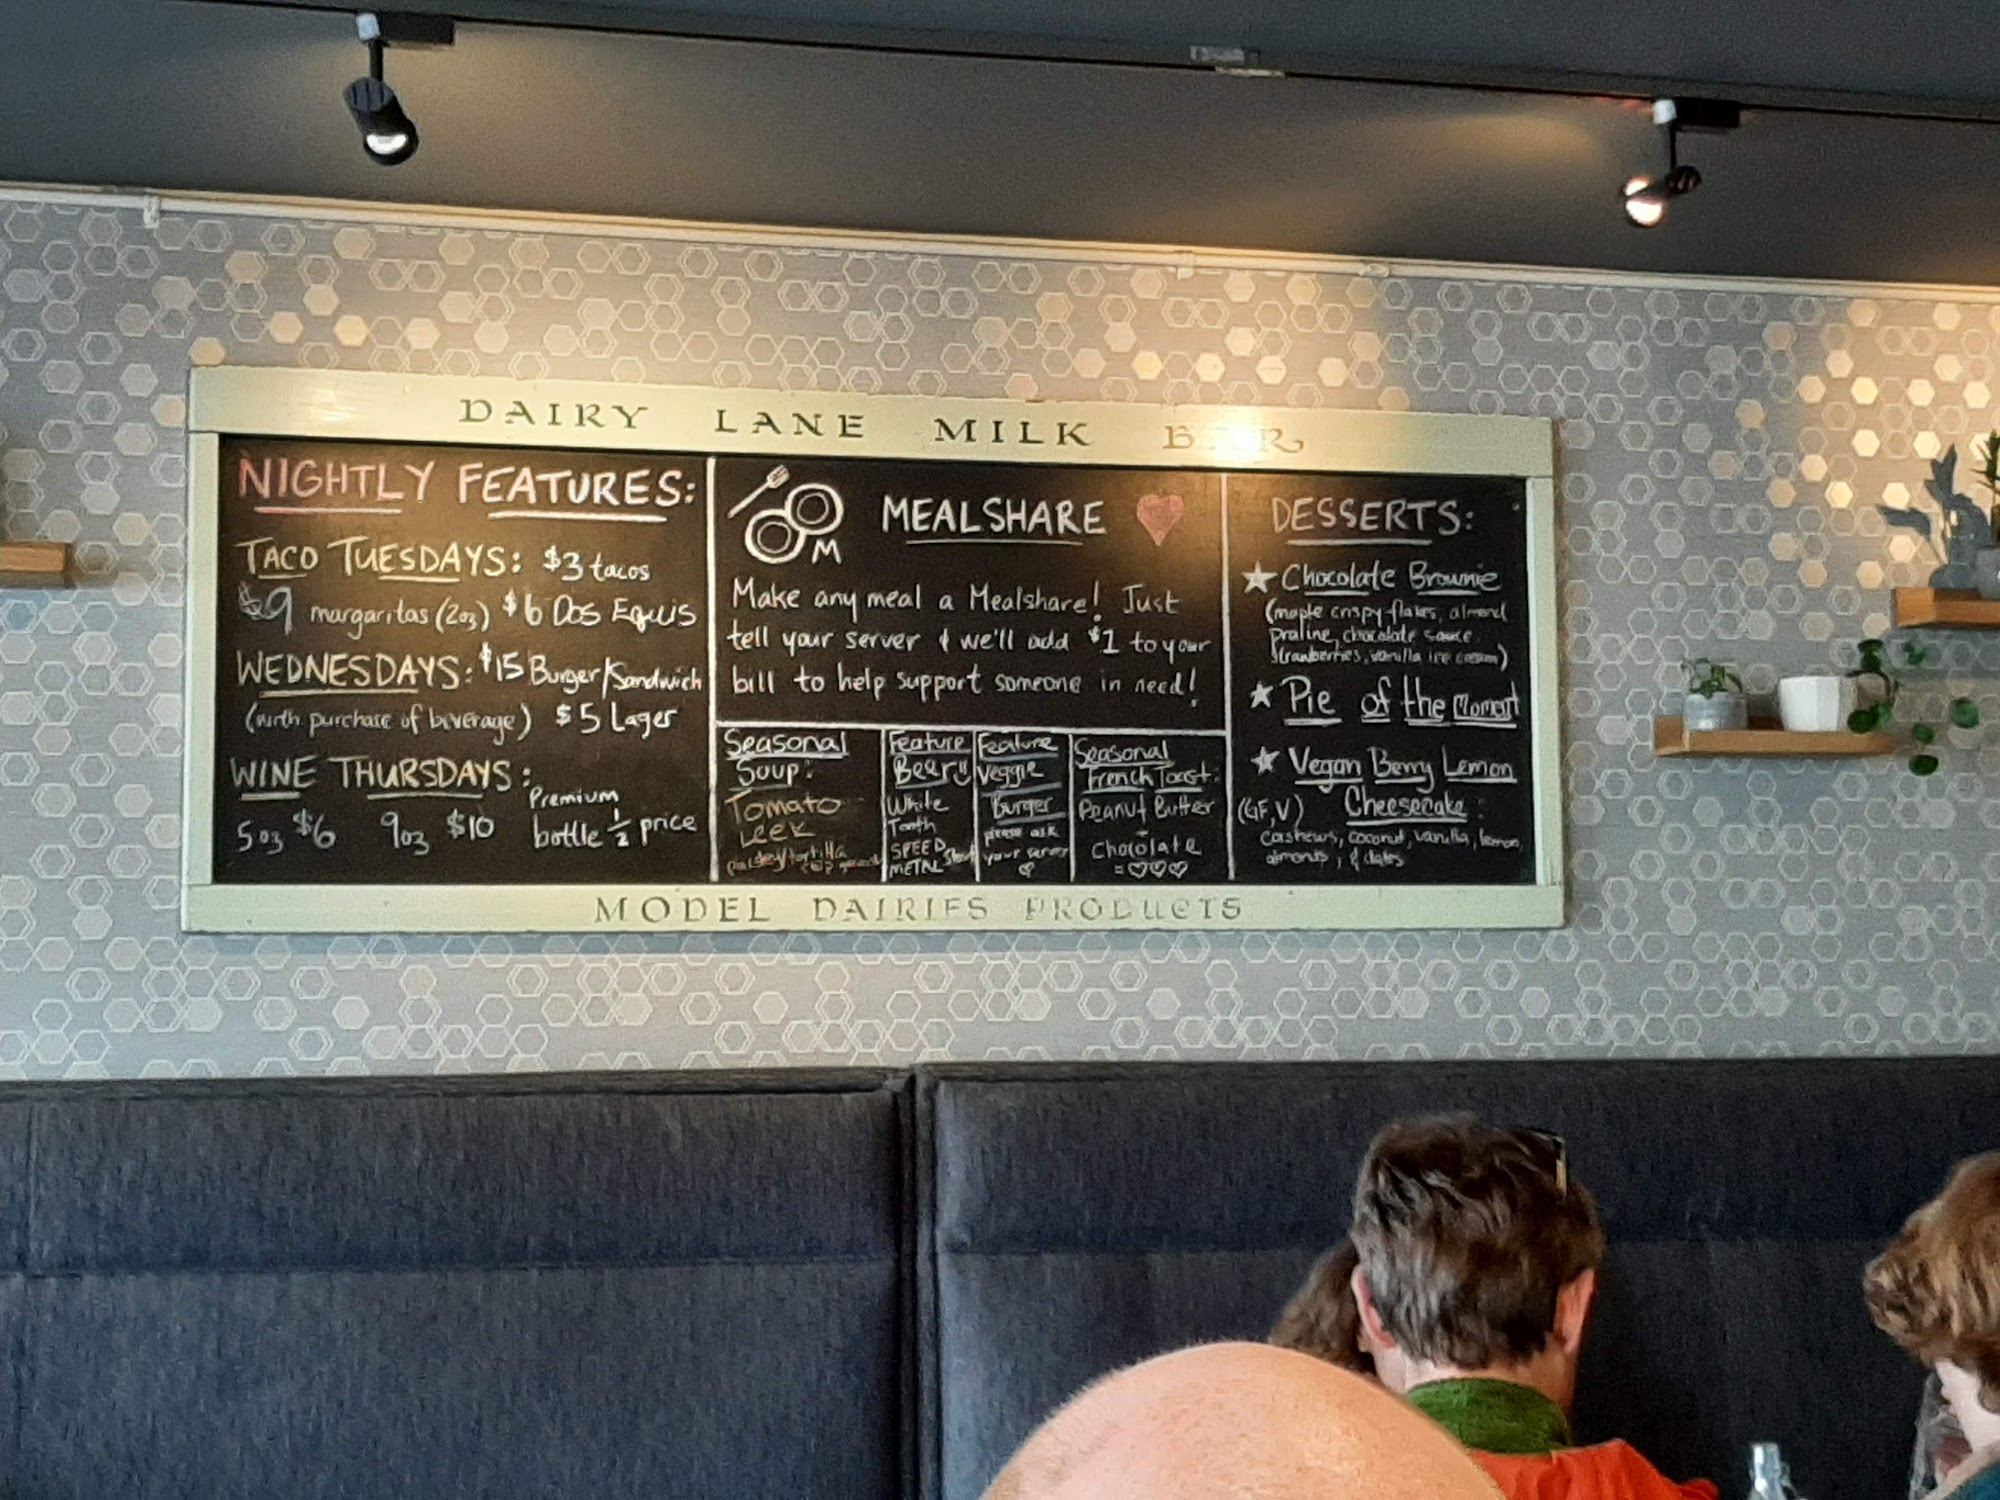 DAIRY LANE MILK BAR
NIGHTLY FEATURES:
TACO TUESDAYS: $3 tacos
$9 margaritas (2oz) $6 Dos Equis
WEDNESDAYS: $15 Burger/Sandwich
(with purchase of beverage) $5 Lager
WINE THURSDAYS:
5oz $6 9oz $10 Premium
bottle 1/2 price
M
MEALSHARE
Make any meal a Mealshare! Just
tell your server & we'll add $1 to your
bill to help support someone in need!
Seasonal
Soup:
Tomato
Leek
Feature
Beer!!
White
Tooth
SPEED
METAL
Feature
Veggie
Burger
please ask
your server
Seasonal
French Toast:
Peanut Butter
Chocolate
=♡♡♡
DESSERTS:
★ Chocolate Brownie
(maple crispy flakes, almond
praline, chocolate sauce,
strawberries, vanilla ice cream)
★ Pie of the Moment
★ Vegan Berry Lemon
(GF, V) Cheesecake:
cashews, coconut, vanilla, lemon,
almonds, & dates
MODEL DAIRIES PRODUCTS